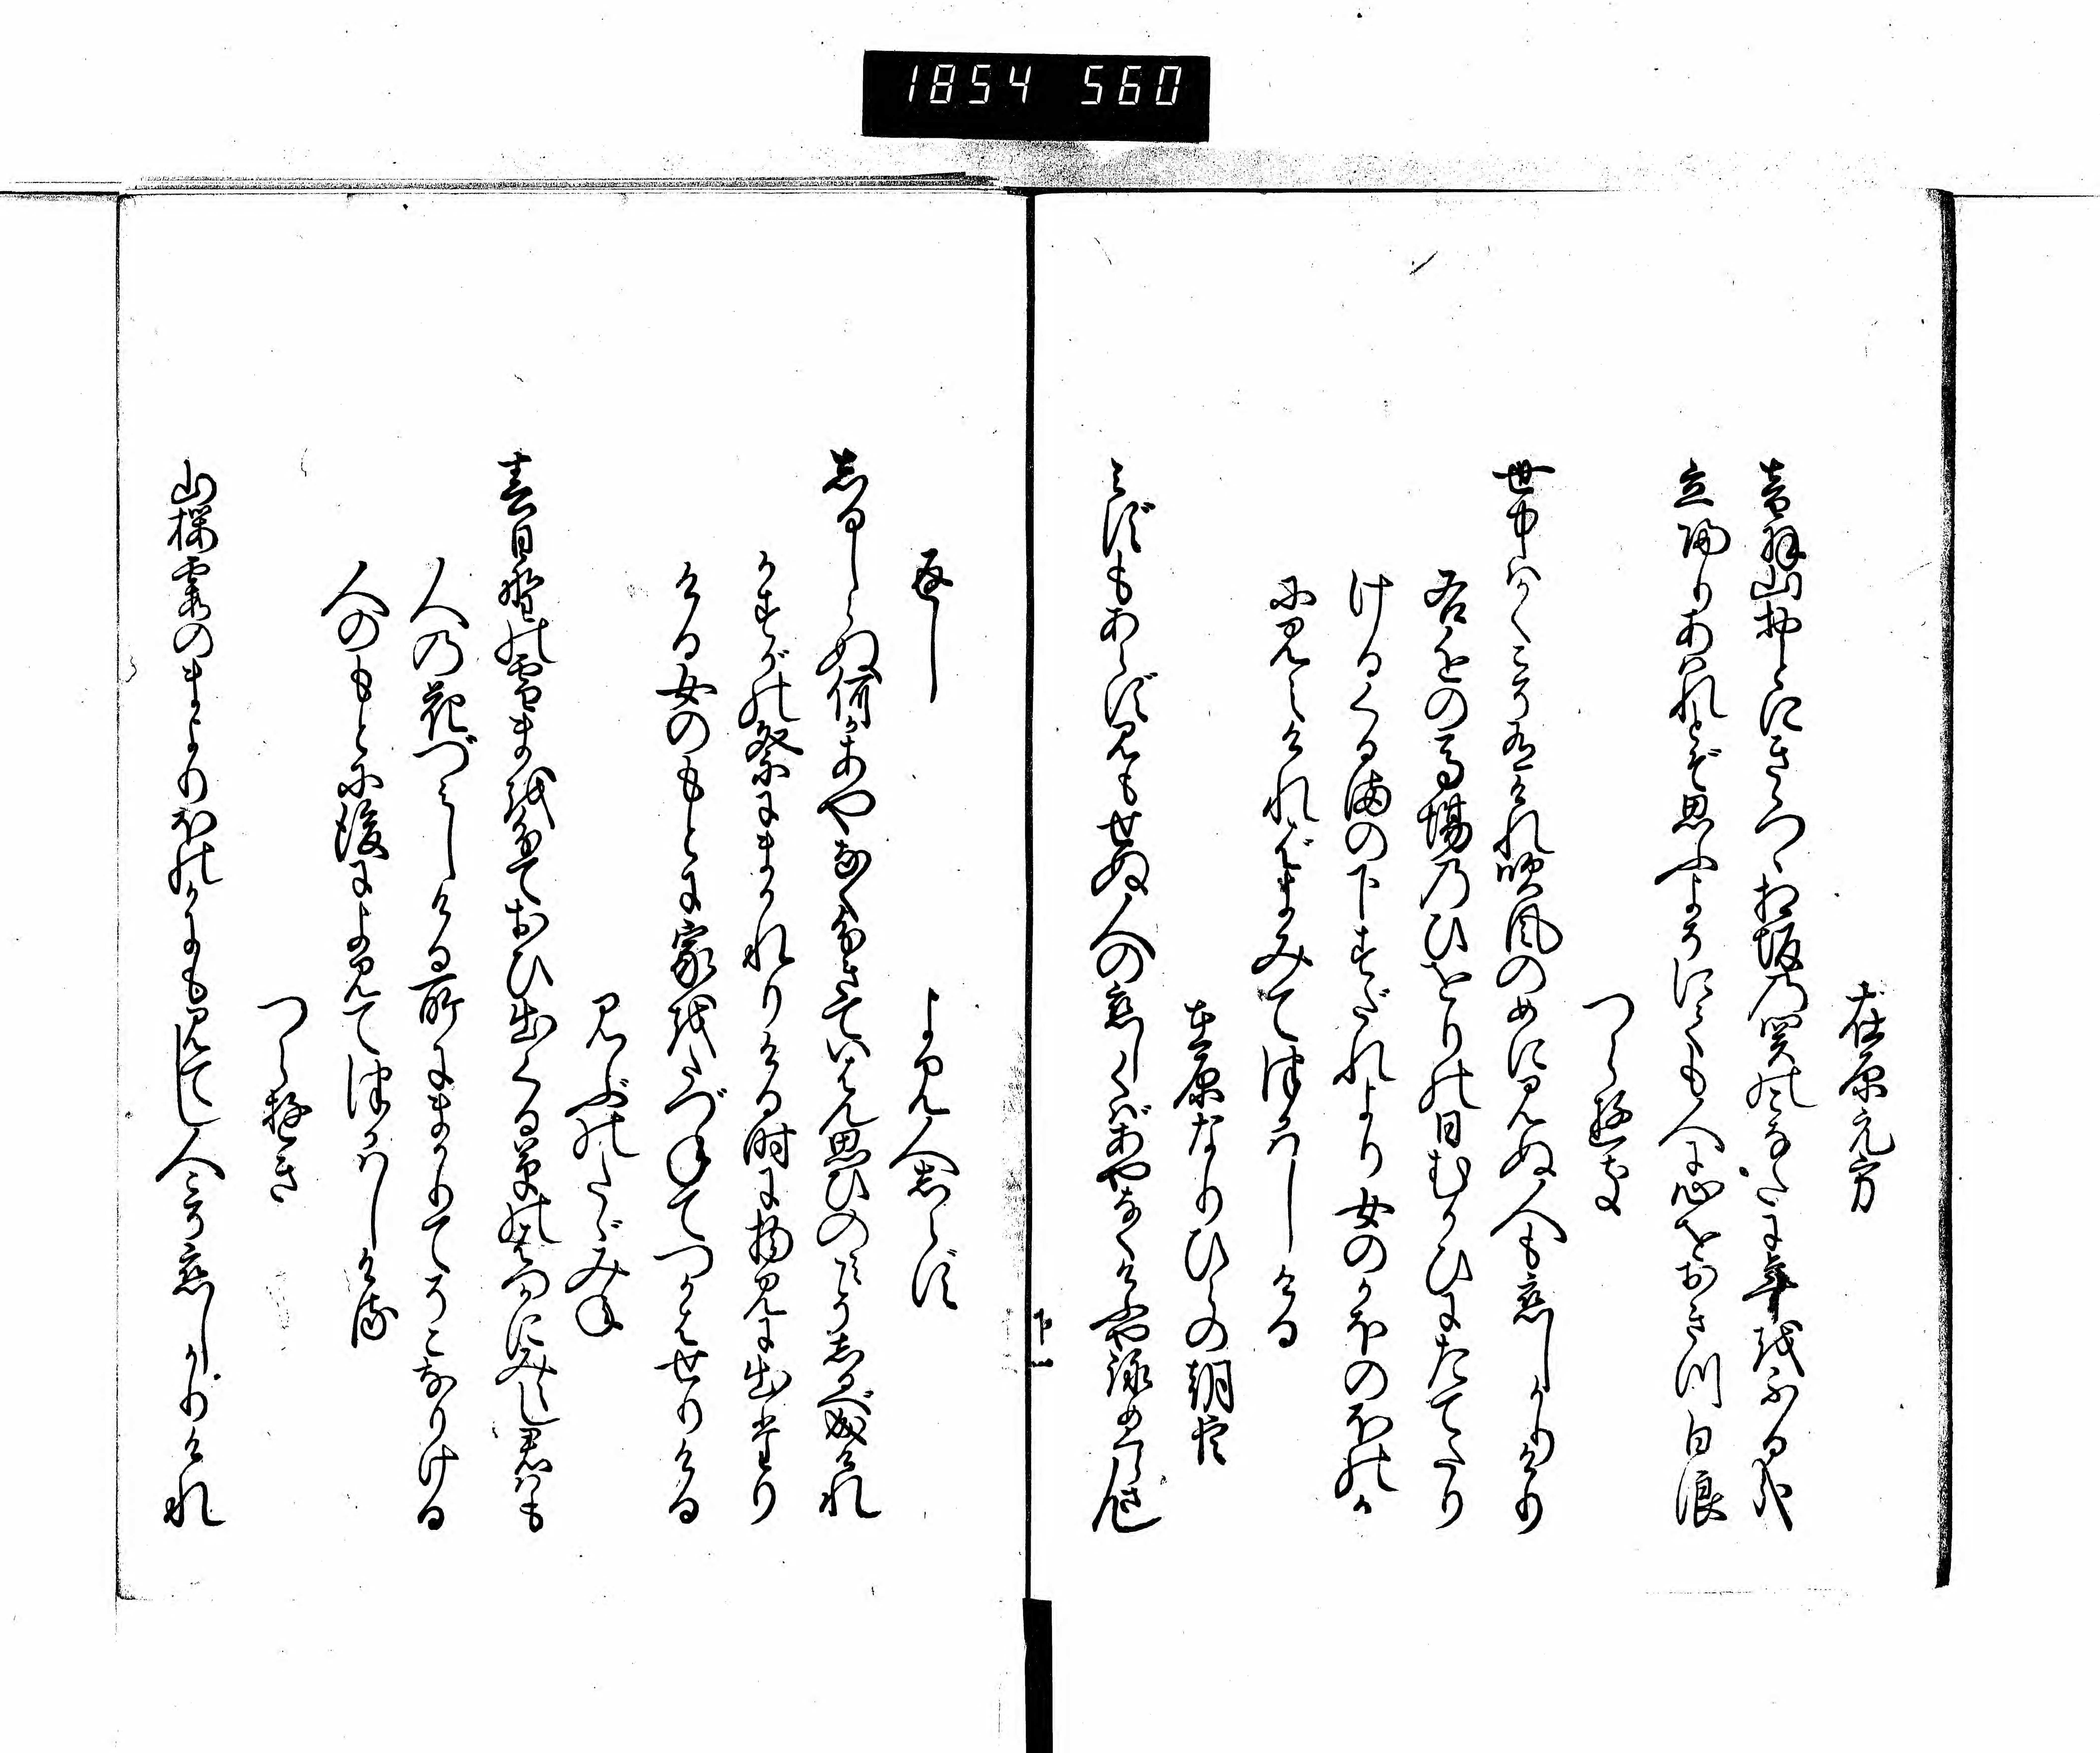 1854 560
在原元方
音羽山おとにきゝつゝ相坂乃関のこなたに年をふる哉
立帰りあはれとぞ思ふよそにても人に心をおきつ白浪
つらゆき
世中はかくこそ有けれ吹風のめに見ぬ人も恋しかりけり
右近の馬場乃ひをりの日むかひにたてたり
けるくるまの下すだれより女のかほのほのか
に見えければよみてつかはしける
在原なりひらの朝臣
みずもあらず見もせぬ人の恋しくはあやなくけふや詠め暮さん
返し
よみ人しらず
しるしらぬ何かあやなくわきていはん思ひのみこそしるべ成けれ
かすがの祭にまかれりける時に物見に出たり
ける女のもとに家をたづねてつかはせりける
みぶのたゞみね
春日野の雪まを分ておひ出くる草のはつかにみえし君はも
人の花づみしける所にまかりてそこなりける
人のもとに後によみてつかはしける
つらゆき
山桜霞のまよりほのかにも見てし人こそ恋しかりけれ